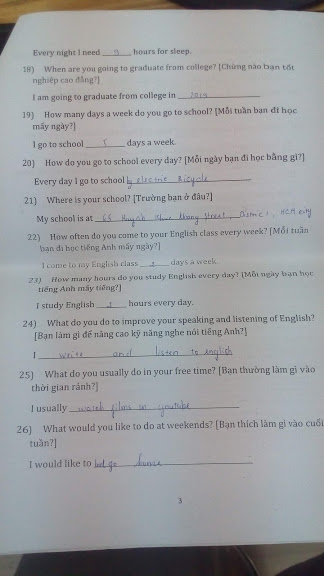 Every night I need 9 hours for sleep.
18) When are you going to graduate from college? [Chừng nào bạn tốt
nghiệp cao đẳng?]
I am going to graduate from college in 2019
19) How many days a week do you go to school? [Mỗi tuần bạn đi học
mấy ngày?]
I go to school 5 days a week.
20) How do you go to school every day? [Mỗi ngày bạn đi học bằng gì?]
Every day I go to school by electric bicycle
21) Where is your school? [Trường bạn ở đâu?]
My school is at 65 Huynh Thuc Khang street, District 1, HCM city
22) How often do you come to your English class every week? [Mỗi tuần
bạn đi học tiếng Anh mấy ngày?]
I come to my English class days a week.
23) How many hours do you study English every day? [Mỗi ngày bạn học
tiếng Anh mấy tiếng?]
I study English hours every day.
24) What do you do to improve your speaking and listening of English?
[Bạn làm gì để nâng cao kỹ năng nghe nói tiếng Anh?]
I write and listen to english
25) What do you usually do in your free time? [Bạn thường làm gì vào
thời gian rảnh?]
I usually watch films in youtube
26) What would you like to do at weekends? [Bạn thích làm gì vào cuối
tuần?]
I would like to go home
3